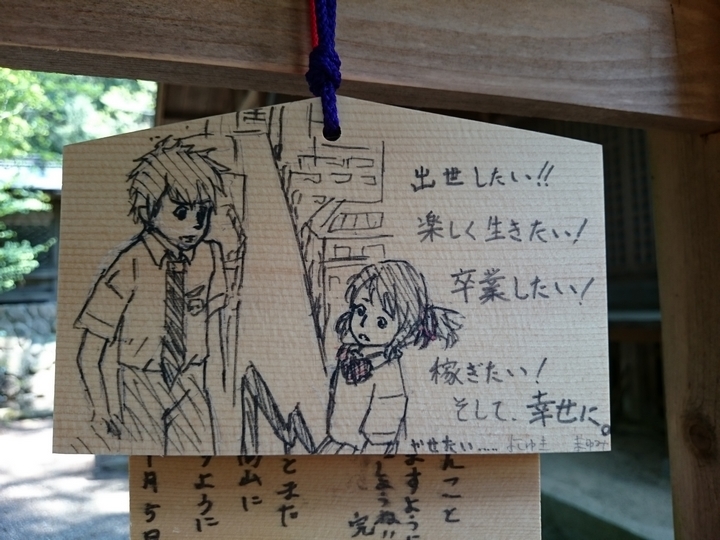 出世したい!!
楽しく生きたい!
卒業したい!
稼ぎたい!
そして、幸せに。
やせたい.....
んこと
ますように
完
と又た
山に
ように
月5日